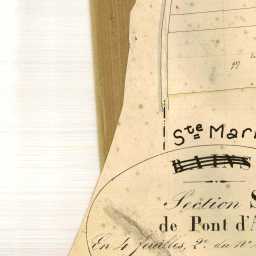 Ste Mar
BAINS
Section S
de Pont d'A
En 4 feuilles, 2e du No